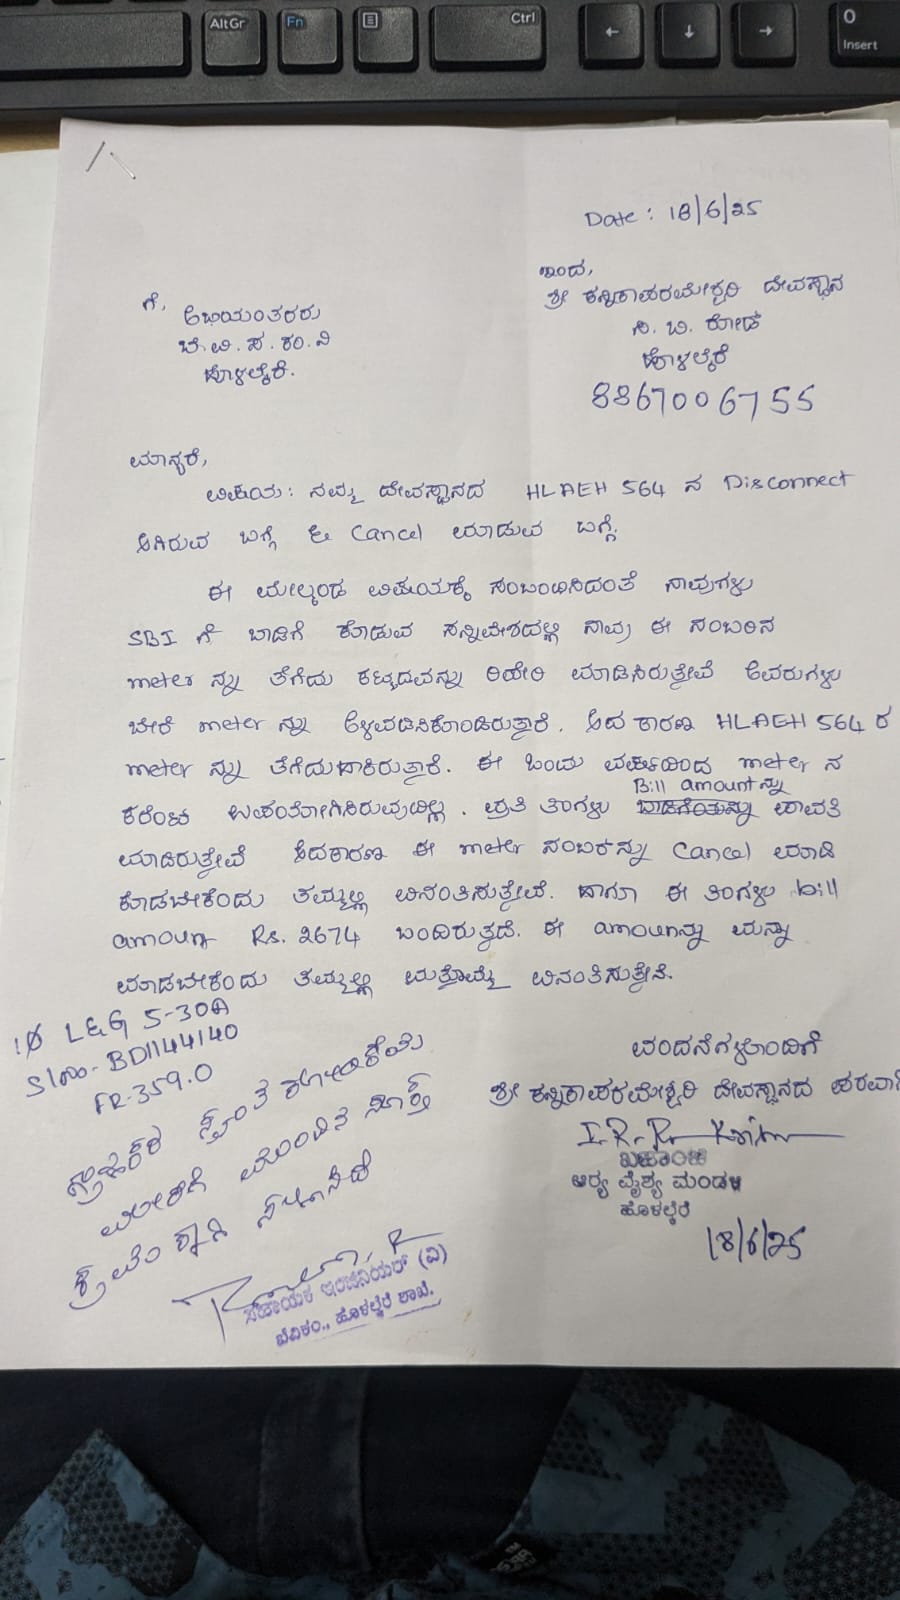 AltGr
Fn
Ctrl
0
Insert
Date : 18/6/25
ಇಂದ,
ಶ್ರೀ ಕನ್ನಿಕಾಪರಮೇಶ್ವರಿ ದೇವಸ್ಥಾನ
ಎನ. ಬಿ. ರೋಡ್
ಹೊಳಲ್ಕೆರೆ
8867006755
ಗೆ,
ಅಭಿಯಂತರರು
ಬೆ. ವಿ. ಸ. ಕಂ. ನಿ
ಹೊಳಲ್ಕೆರೆ.
ಮಾನ್ಯರೆ,
ವಿಷಯ: ನಮ್ಮ ದೇವಸ್ಥಾನದ HLAEH 564 ನ Disconnect
ಆಗಿರುವ ಬಗ್ಗೆ & Cancel ಮಾಡುವ ಬಗ್ಗೆ.
ಈ ಮೇಲ್ಕಂಡ ವಿಷಯಕ್ಕೆ ಸಂಬಂಧಿಸಿದಂತೆ ನಾವುಗಳು
SBI ಗೆ ಬಾಡಿಗೆ ಕೊಡುವ ಸನ್ನಿವೇಶದಲ್ಲಿ ನಾವು ಈ ನಂಬರಿನ
meter ನ್ನು ತೆಗೆದು ಕಟ್ಟಡವನ್ನು ರಿಪೇರಿ ಮಾಡಿಸಿರುತ್ತೇವೆ ಅವರುಗಳು
ಬೇರೆ meter ನ್ನು ಅಳವಡಿಸಿಕೊಂಡಿರುತ್ತಾರೆ. ಆದ ಕಾರಣ HLAEH 564 ರ
meter ನ್ನು ತೆಗೆದುಹಾಕಿರುತ್ತಾರೆ. ಈ ಒಂದು ವರ್ಷದಿಂದ meter ನ
ಕರೆಂಟು ಉಪಯೋಗಿಸಿರುವುದಿಲ್ಲ. ಪ್ರತಿ ತಿಂಗಳು Bill amount ನ್ನು ಪಾವತಿ
ಮಾಡಿರುತ್ತೇವೆ ಆದಕಾರಣ ಈ meter ನಂಬರನ್ನು Cancel ಮಾಡಿ
ಕೊಡಬೇಕೆಂದು ತಮ್ಮಲ್ಲಿ ವಿನಂತಿಸುತ್ತೇವೆ. ಹಾಗೂ ಈ ತಿಂಗಳು bill
amount Rs. 2674 ಬಂದಿರುತ್ತದೆ. ಈ amountನ್ನು ಮನ್ನಾ
ಮಾಡಬೇಕೆಂದು ತಮ್ಮಲ್ಲಿ ಮತ್ತೊಮ್ಮೆ ವಿನಂತಿಸುತ್ತೇನೆ.
ವಂದನೆಗಳೊಂದಿಗೆ
ಶ್ರೀ ಕನ್ನಿಕಾಪರಮೇಶ್ವರಿ ದೇವಸ್ಥಾನದ ಪರವಾಗಿ
ಖಜಾಂಚಿ
ಆರ್ಯ ವೈಶ್ಯ ಮಂಡಳಿ
ಹೊಳಲ್ಕೆರೆ
18/6/25
1Ø L&G 5-30A
Sl no- BD1144140
FR-359.0
ಗ್ರಾಹಕರ ಸ್ವಂತ ಕೋರಿಕೆಯ
ಮೇರೆಗೆ ಮುಂದಿನ ಸೂಕ್ತ
ಕ್ರಮಕ್ಕಾಗಿ ಸಲ್ಲಿಸಿದೆ
ಸಹಾಯಕ ಇಂಜಿನಿಯರ್ (ವಿ)
ಬೆವಿಕಂ., ಹೊಳಲ್ಕೆರೆ ಶಾಖೆ.